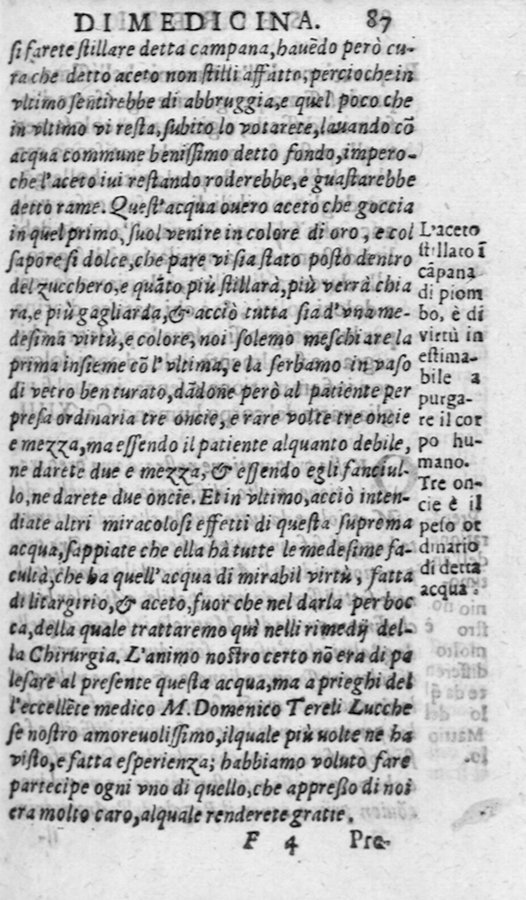 DI MEDICINA. 87
si farete stillare detta campana, hauẽdo però cu-
ra che detto aceto non stilli affatto, percioche in
vltimo sentirebbe di abbruggia, e quel poco che
in vltimo vi resta, subito lo votarete, lauando cõ
acqua commune benissimo detto fondo, impero-
che l'aceto iui restando roderebbe, e guastarebbe
detto rame. Quest'acqua ouero aceto che goccia
in quel primo, suol venire in colore di oro, e col
sapore si dolce, che pare vi sia stato posto dentro
del zucchero, e quãto più stillarà, più verrà chia
ra, e più gagliarda, & acciò tutta sia d'vna me-
desima virtù, e colore, noi solemo meschiare la
prima insieme cõ l'vltima, e la serbamo in vaso
di vetro ben turato, dãdone però al patiente per
presa ordinaria tre oncie, e rare volte tre oncie
e mezza, ma essendo il patiente alquanto debile,
ne darete due e mezza, & essendo egli fanciul-
lo, ne darete due oncie. Et in vltimo, acciò inten-
diate altri miracolosi effetti di questa suprema
acqua, sappiate che ella hà tutte le medesime fa-
cultà, che ha quell'acqua di mirabil virtù, fatta
di litargirio, & aceto, fuor che nel darla per boc
ca, della quale trattaremo quì nelli rimedij del-
la Chirurgia. L'animo nostro certo nõ era di pa
lesare al presente questa acqua, ma a prieghi del
l'eccellẽte medico M. Domenico Tereli Lucche
se nostro amoreuolissimo, ilquale più uolte ne ha
visto, e fatta esperienza; habbiamo voluto fare
partecipe ogni vno di quello, che appresso di noi
era molto caro, alquale renderete gratie.
L'aceto
stillato ĩ
cãpana
di piom
bo, è di
virtù in
estima-
bile a
purga-
re il cor
po hu-
mano.
Tre on-
cie è il
peso or
dinario
di detta
acqua.
F 4 Pre-